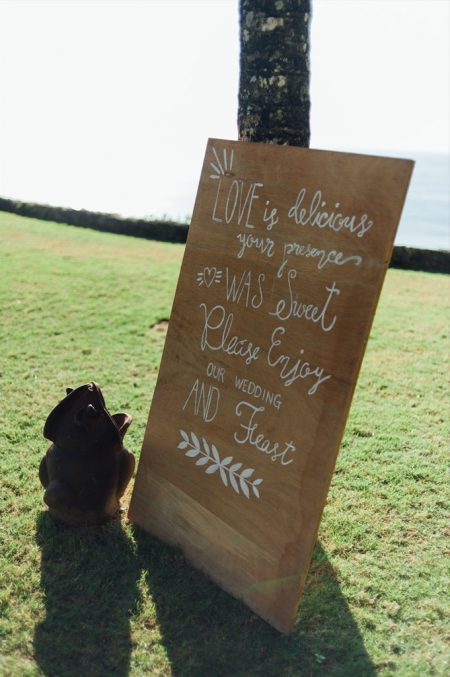 LOVE is delicious
your presence
WAS Sweet
Please Enjoy
OUR WEDDING
AND Feast